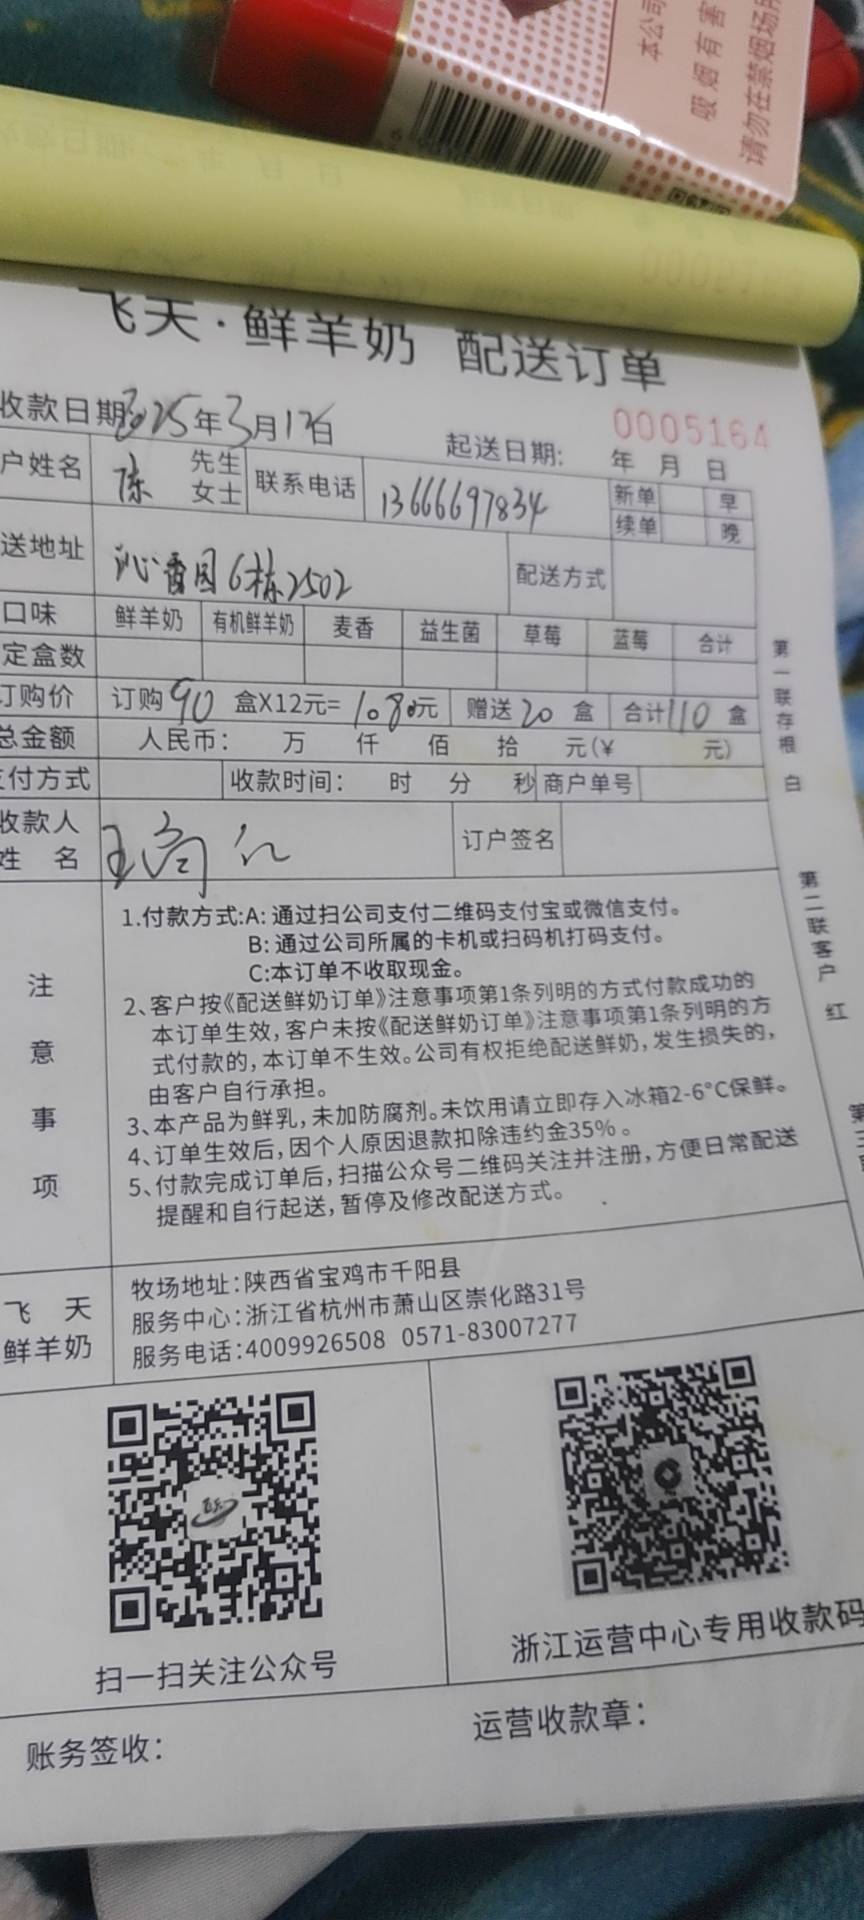 本公司
吸烟有害
请勿在禁烟场所
飞天·鲜羊奶 配送订单
0005164
收款日期2025年3月17日
起送日期: 年 月 日
户姓名 陈 先生 女士 联系电话 13666697834 新单 早
续单 晚
送地址 沁香园6栋2502 配送方式
口味 鲜羊奶 有机鲜羊奶 麦香 益生菌 草莓 蓝莓 合计
定盒数
订购价 订购90盒X12元=1080元 赠送20盒 合计110盒
总金额 人民币: 万 仟 佰 拾 元(¥ 元)
支付方式 收款时间: 时 分 秒 商户单号
收款人姓名 订户签名
注意事项
1.付款方式:A:通过扫公司支付二维码支付宝或微信支付。
B:通过公司所属的卡机或扫码机打码支付。
C:本订单不收取现金。
2、客户按《配送鲜奶订单》注意事项第1条列明的方式付款成功的
本订单生效,客户未按《配送鲜奶订单》注意事项第1条列明的方
式付款的,本订单不生效。公司有权拒绝配送鲜奶,发生损失的,
由客户自行承担。
3、本产品为鲜乳,未加防腐剂。未饮用请立即存入冰箱2-6°C保鲜。
4、订单生效后,因个人原因退款扣除违约金35%。
5、付款完成订单后,扫描公众号二维码关注并注册,方便日常配送
提醒和自行起送,暂停及修改配送方式。
第一联存根 白
第二联客户 红
第三
飞天
鲜羊奶
牧场地址:陕西省宝鸡市千阳县
服务中心:浙江省杭州市萧山区崇化路31号
服务电话:4009926508 0571-83007277
扫一扫关注公众号
浙江运营中心专用收款码
账务签收:
运营收款章: